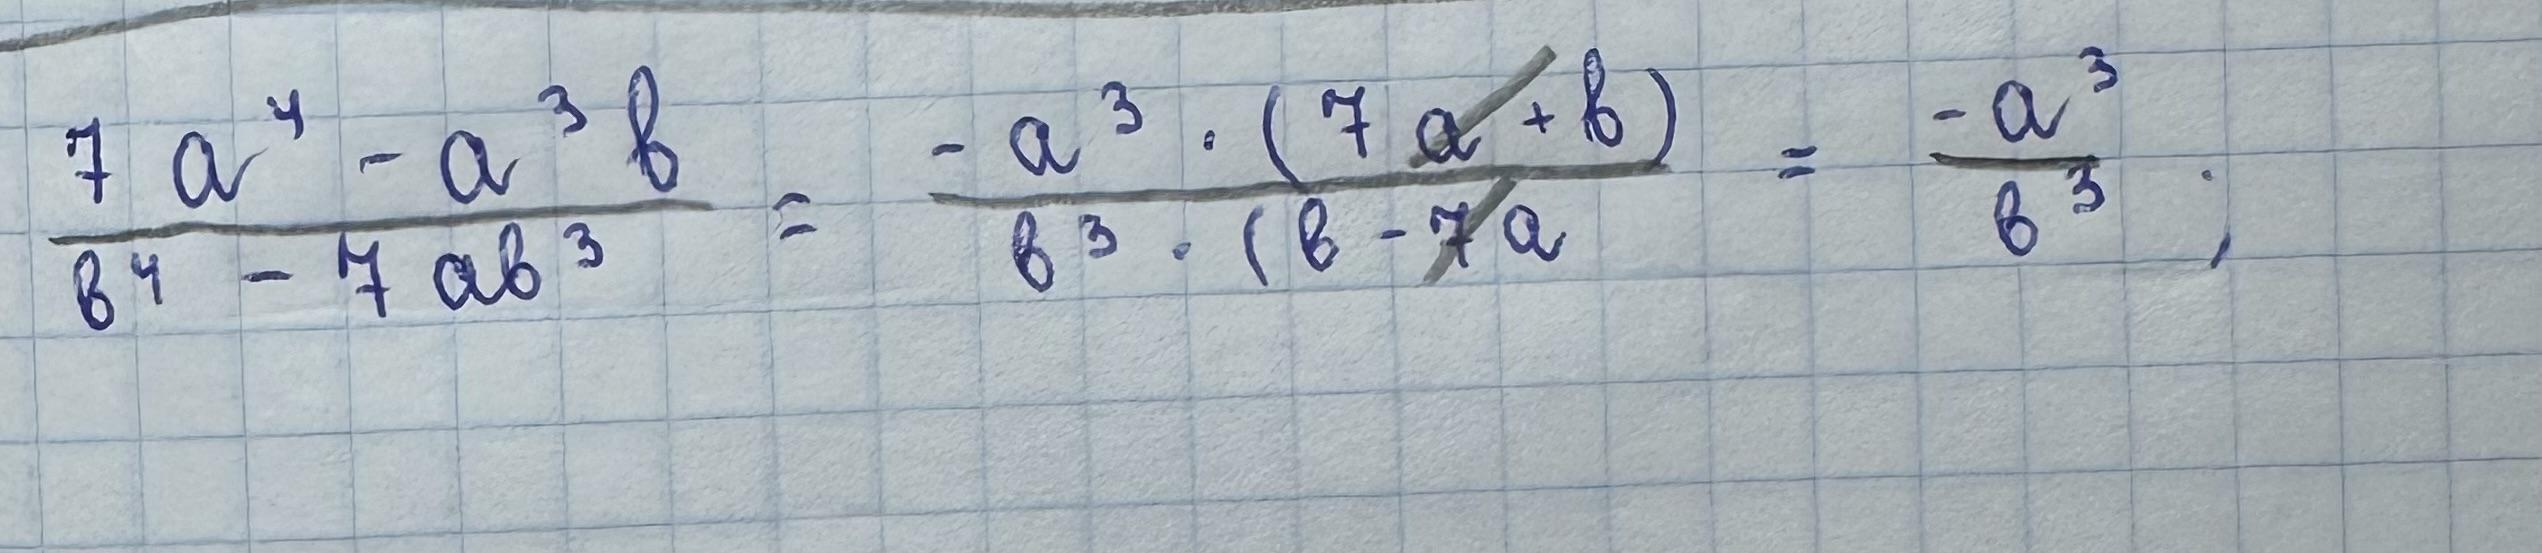 (7a⁴ - a³b)/(b⁴ - 7ab³) = (-a³ · (7a + b))/(b³ · (b - 7a) = (-a³)/(b³) ;